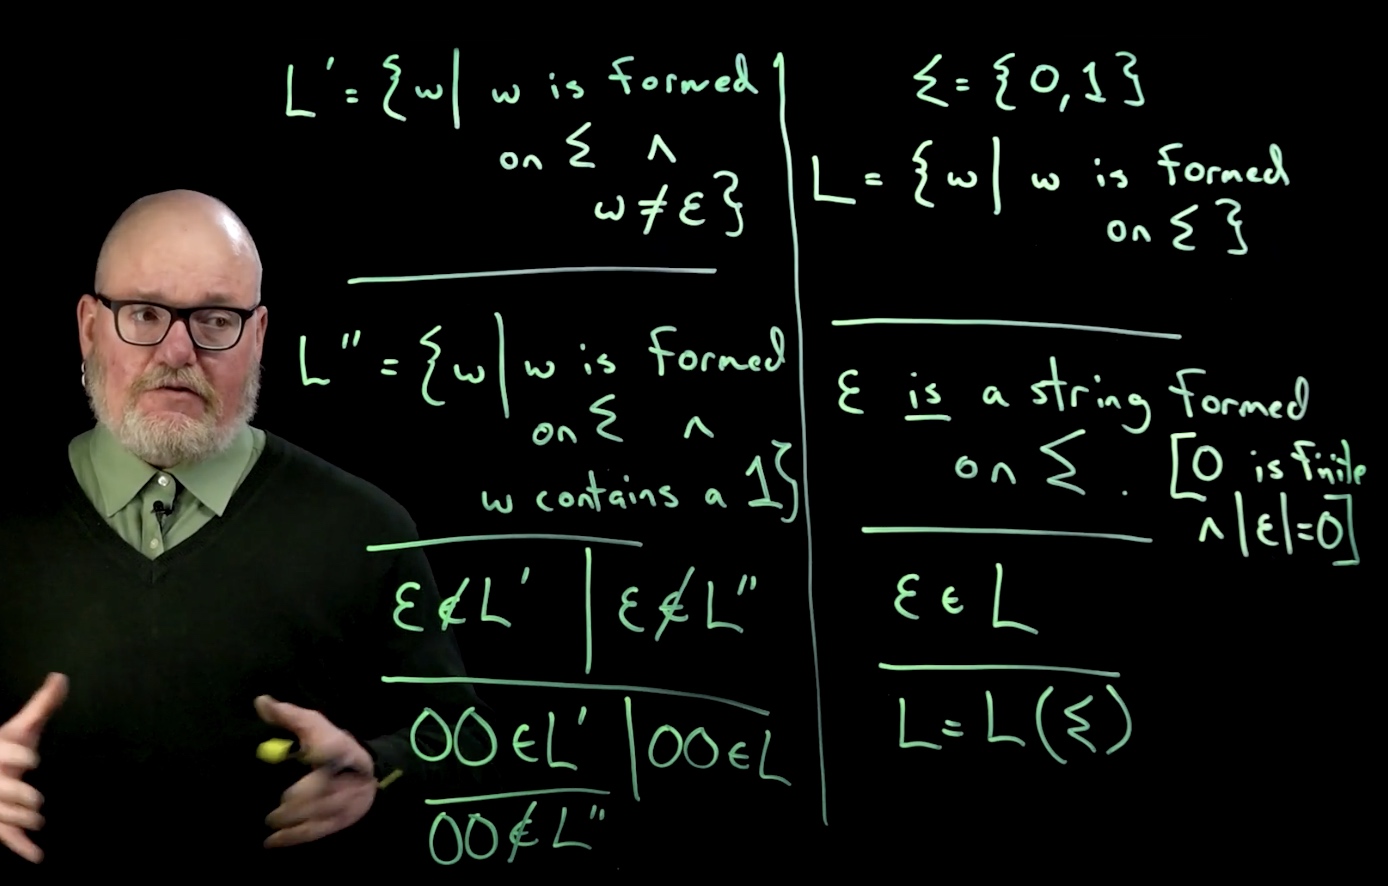 L' = {w| w is formed
on Σ ∧
w ≠ ε}
L" = {w| w is formed
on Σ ∧
w contains a 1}
ε ∉ L' | ε ∉ L"
00 ∈ L' | 00 ∈ L
00 ∉ L"
Σ = {0,1}
L = {w| w is formed
on Σ}
ε is a string formed
on Σ. [0 is finite
∧ |ε|=0]
ε ∈ L
L = L(Σ)